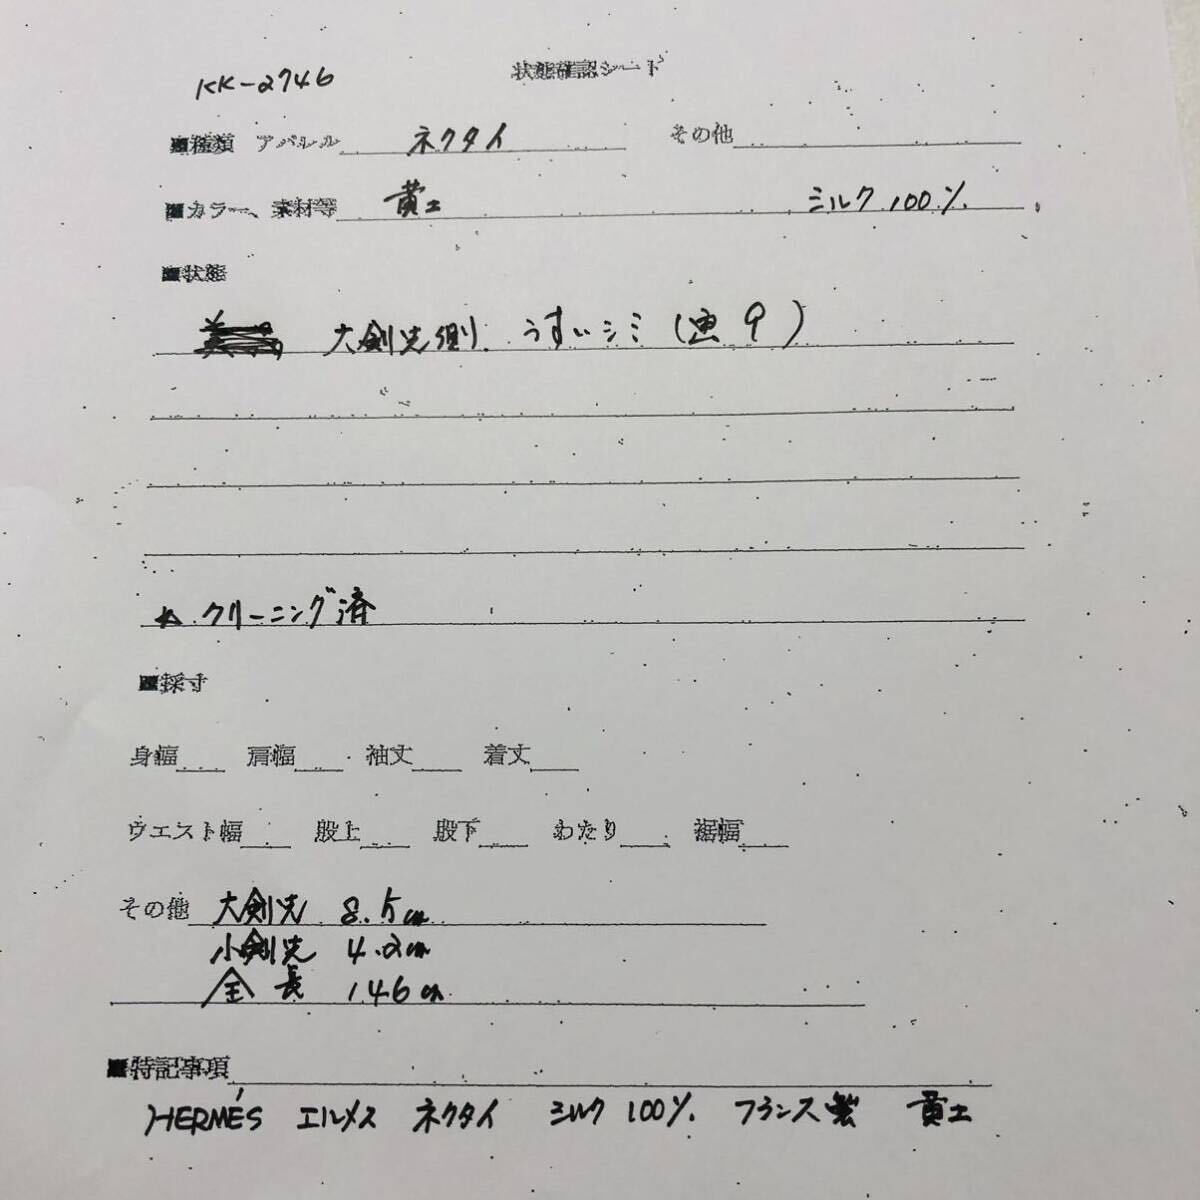 KK-2746
状態確認シート
■種類 アパレル ネクタイ その他
■カラー、素材等 黄土 シルク 100%
■状態
大剣先側 うすいシミ(画9)
☆クリーニング済
■採寸
身幅 肩幅 袖丈 着丈
ウエスト幅 股上 股下 わたり 裾幅
その他 大剣先 8.5cm
小剣先 4.2cm
全長 146cm
■特記事項
HERMÉS エルメス ネクタイ シルク 100% フランス製 黄土